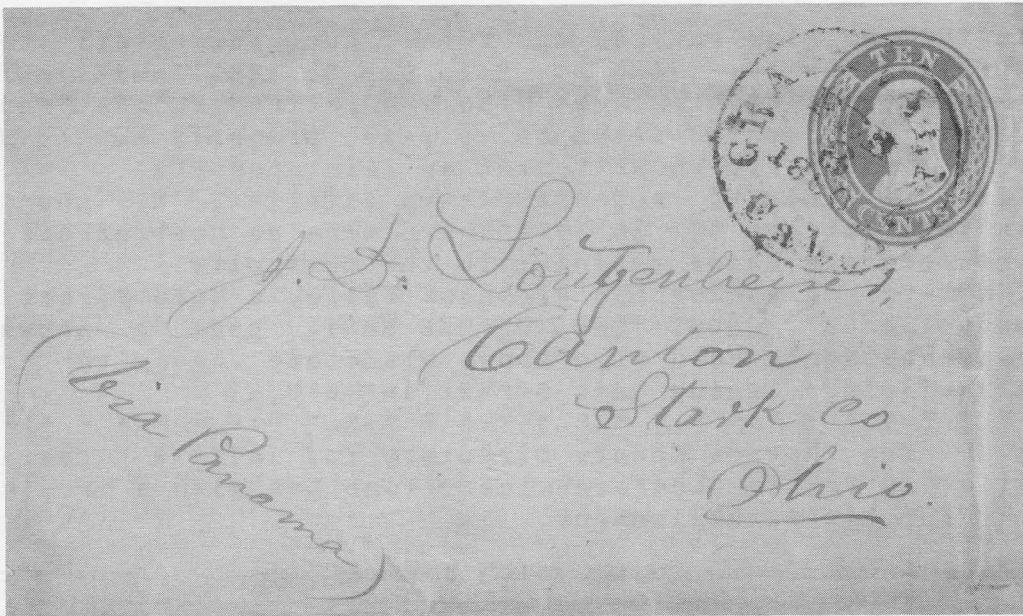 TEN
CENTS
CAL
J. D. Loutzenheiser,
Canton
Stark Co
Ohio.
(Via Panama)